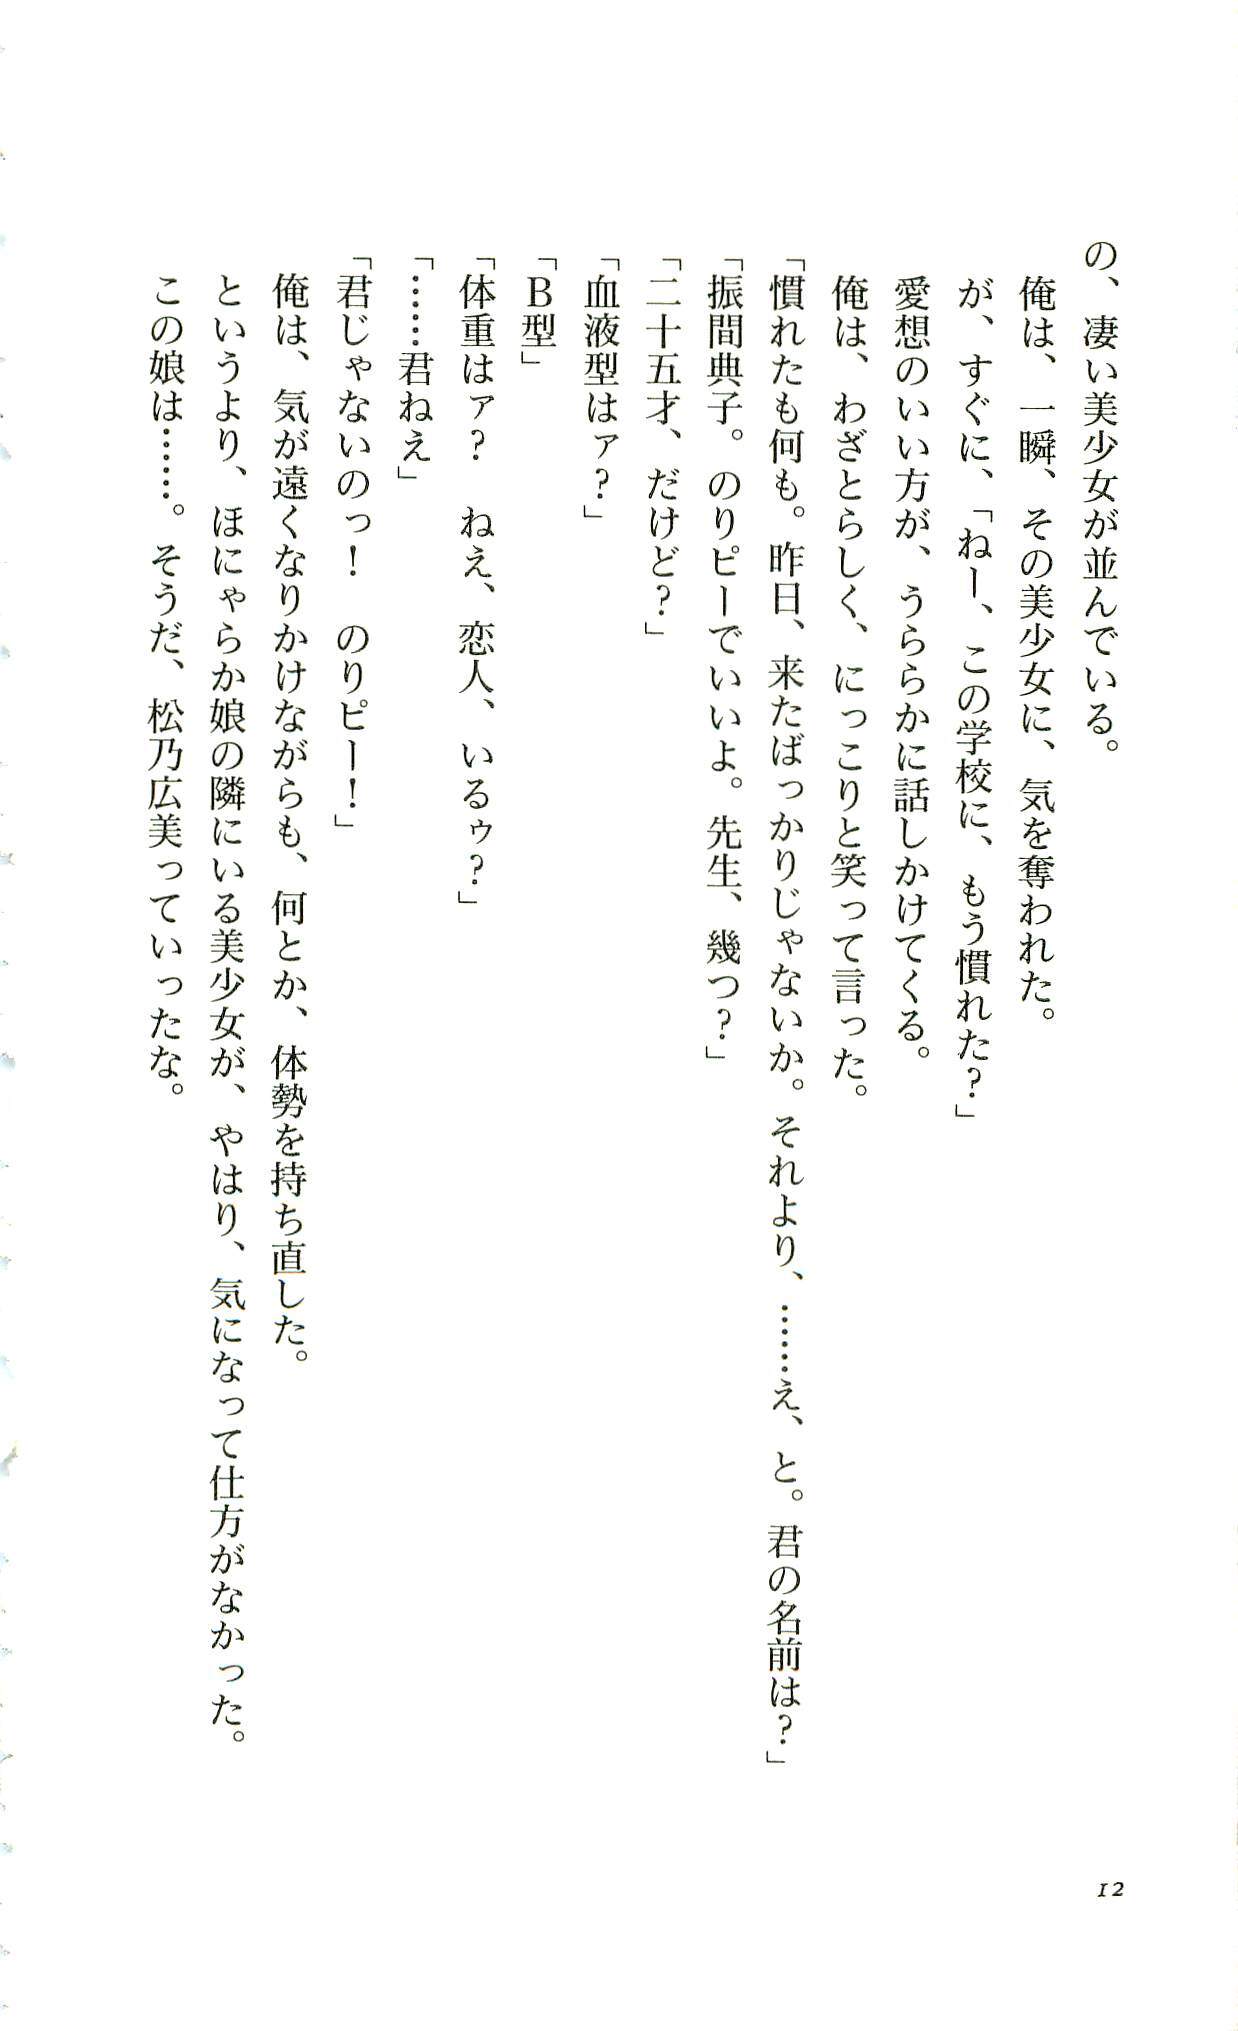 の、凄い美少女が並んでいる。
俺は、一瞬、その美少女に、気を奪われた。
が、すぐに、「ねー、この学校に、もう慣れた？」
愛想のいい方が、うららかに話しかけてくる。
俺は、わざとらしく、にっこりと笑って言った。
「慣れたも何も。昨日、来たばっかりじゃないか。それより、……え、と。君の名前は？」
「振間典子。のりピーでいいよ。先生、幾つ？」
「二十五才、だけど？」
「血液型はァ？」
「Ｂ型」
「体重はァ？　ねえ、恋人、いるゥ？」
「……君ねえ」
「君じゃないのっ！　のりピー！」
俺は、気が遠くなりかけながらも、何とか、体勢を持ち直した。
というより、ほにゃらか娘の隣にいる美少女が、やはり、気になって仕方がなかった。
この娘は……。そうだ、松乃広美っていったな。
12